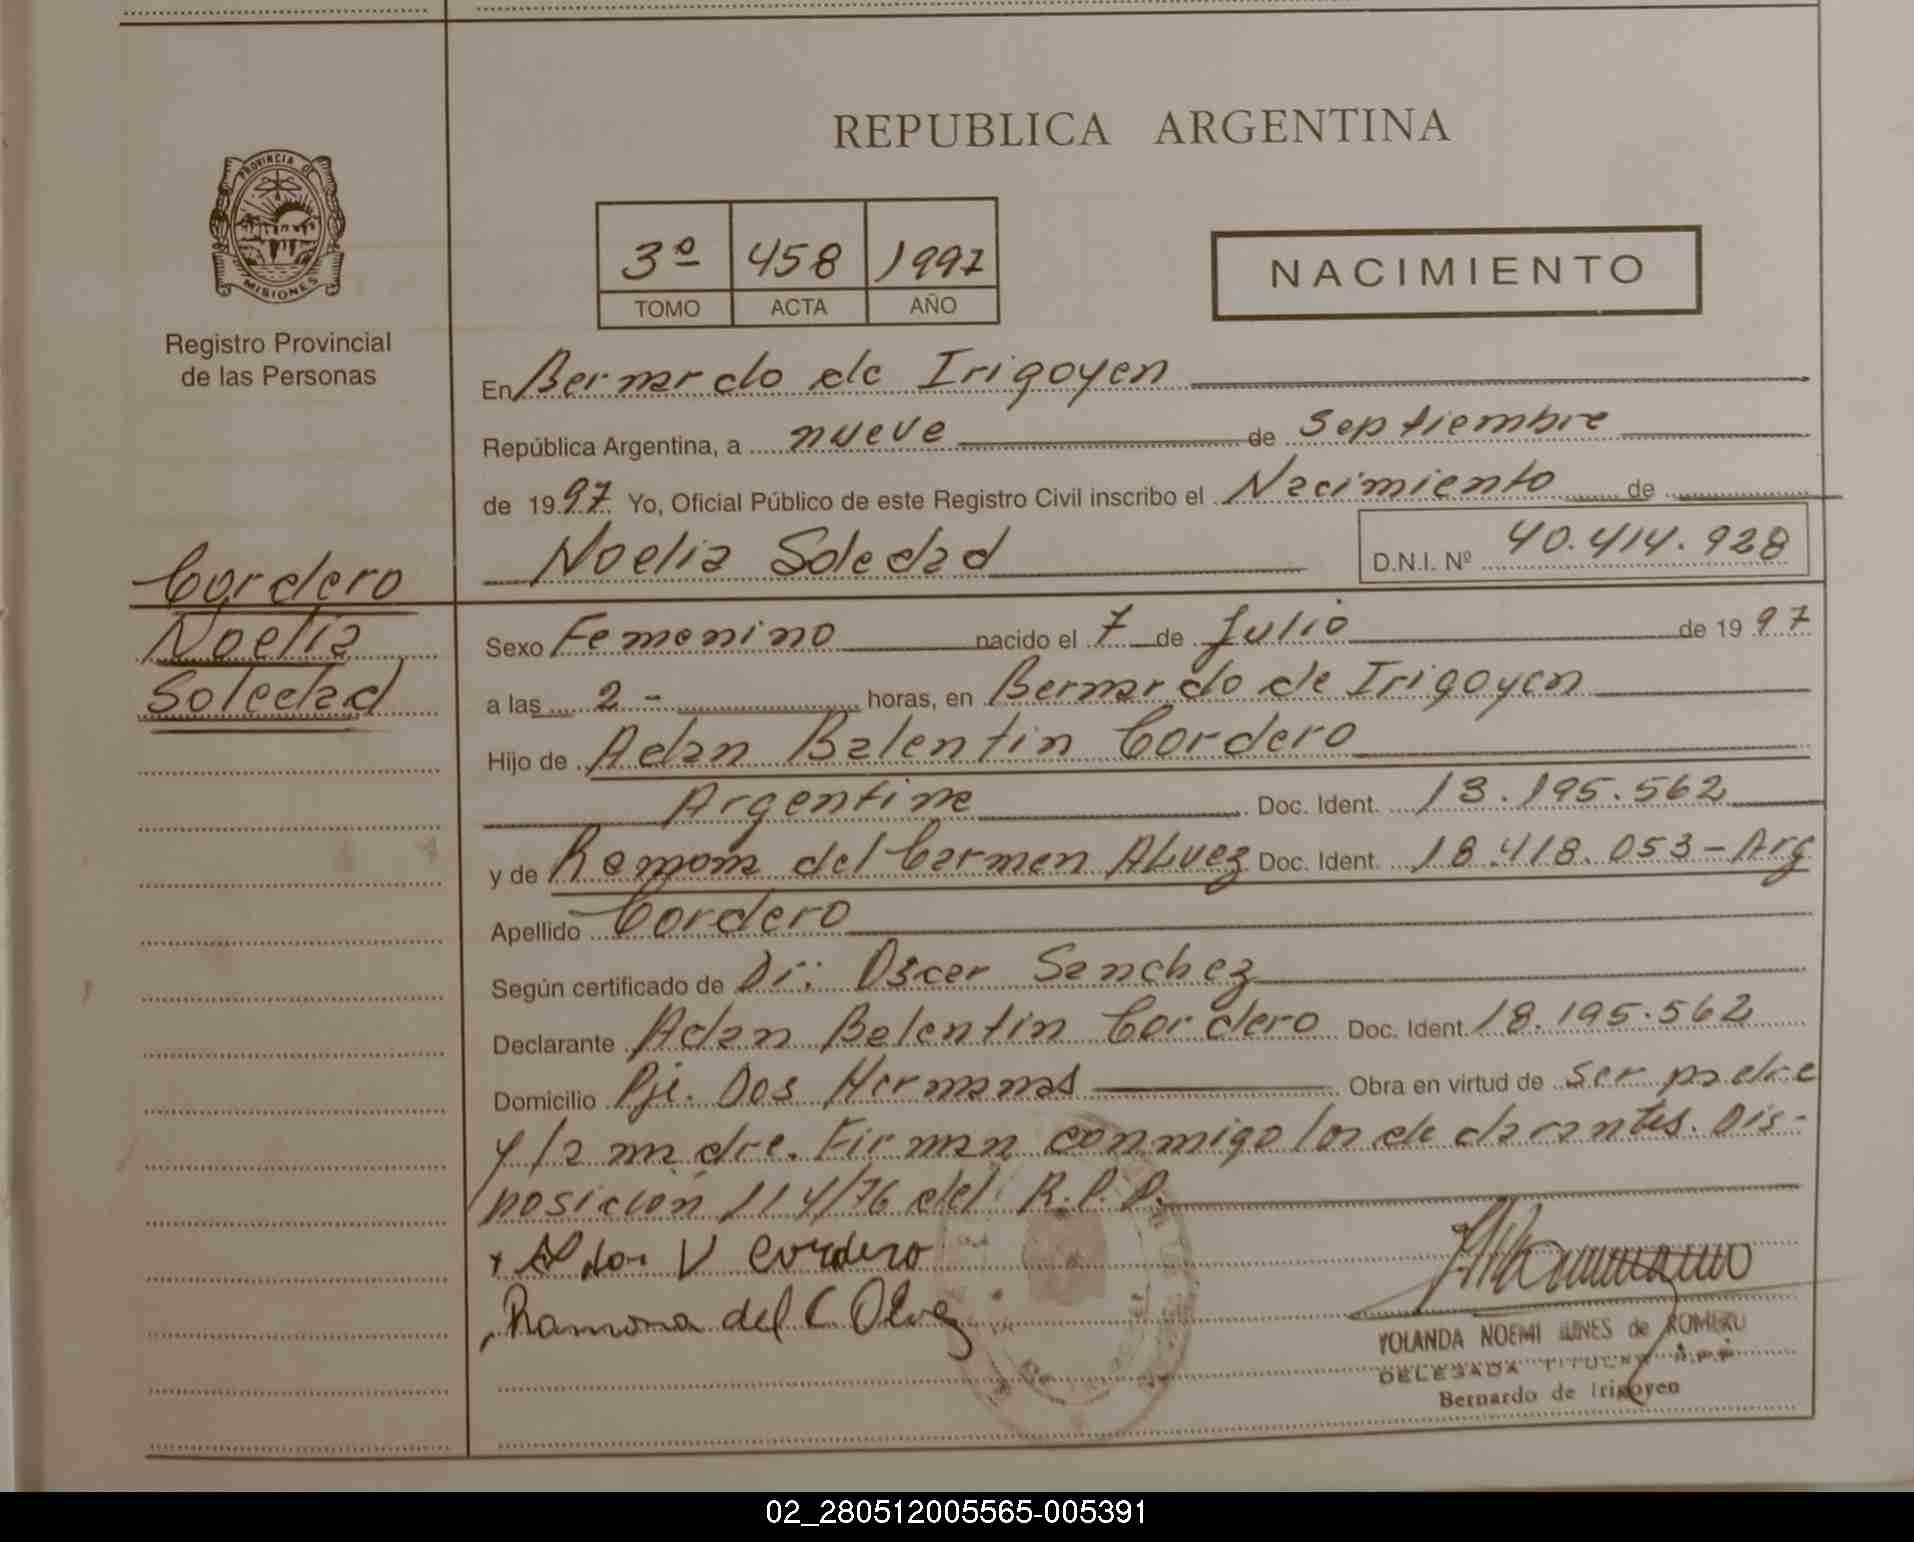 REPUBLICA ARGENTINA
PROVINCIA DE
MISIONES
Registro Provincial
de las Personas
3º 458 1997
TOMO ACTA AÑO
NACIMIENTO
En Bernardo de Irigoyen
República Argentina, a nueve de Septiembre
de 1997 Yo, Oficial Público de este Registro Civil inscribo el Nacimiento de
Noelia Soledad D.N.I. Nº 40.414.928
Cordero
Noelia
Soledad
Sexo Femenino nacido el 7 de Julio de 1997
a las 2 - horas, en Bernardo de Irigoyen
Hijo de Adan Balentin Cordero
Argentina Doc. Ident. 13.195.562
y de Ramona del Carmen ALvez Doc. Ident. 18.418.053 - Arg
Apellido Cordero
Según certificado de Dr: Oscar Sanchez
Declarante Adan Balentin Cordero Doc. Ident. 18.195.562
Domicilio Pje. Dos Hermanas Obra en virtud de ser padre
y la madre. Firman conmigo los declarantes. Dis-
posición 114/76 del R.P.P.
V Cordero
Ramona del C Olvez
YOLANDA NOEMI de ROMERO
DELEGADA TITULAR R.P.P.
Bernardo de Irigoyen
02_280512005565-005391